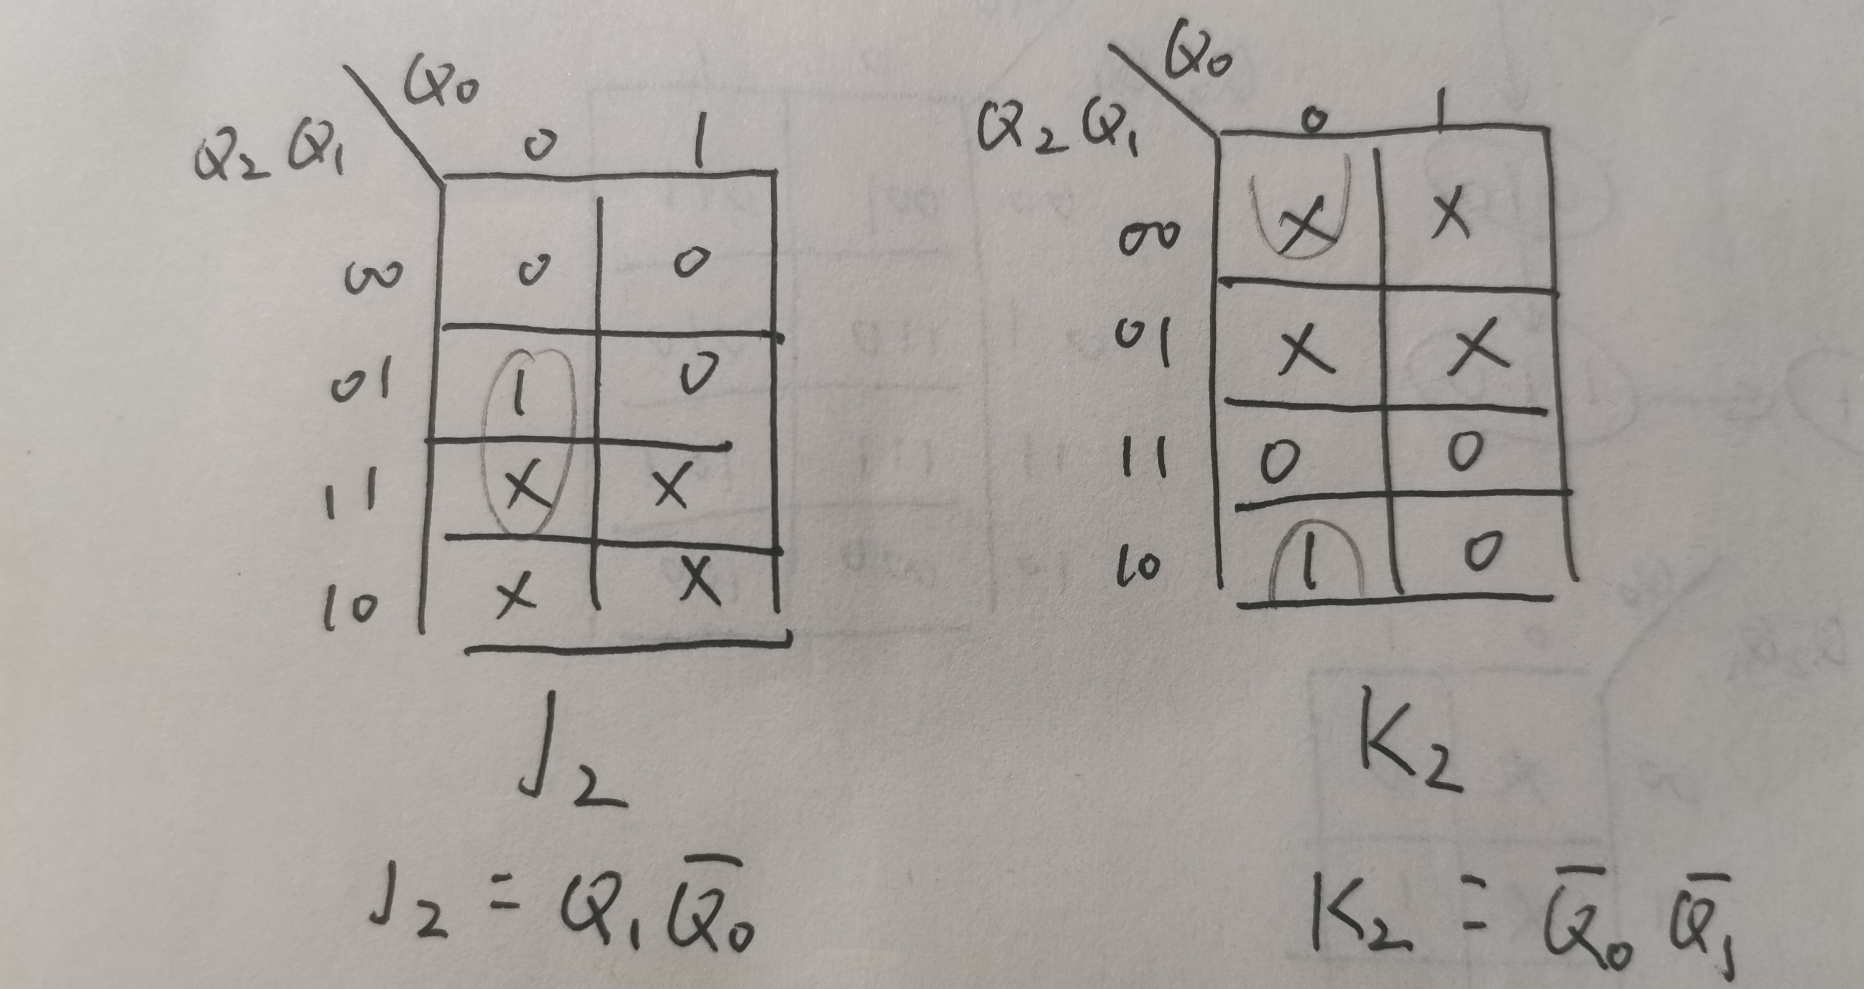 Q₀
Q₂ Q₁ 0 1
00 0 0
01 1 0
11 X X
10 X X
J₂
J₂ = Q₁ Q̅₀
Q₀
Q₂ Q₁ 0 1
00 X X
01 X X
11 0 0
10 1 0
K₂
K₂ = Q̅₀ Q̅₁